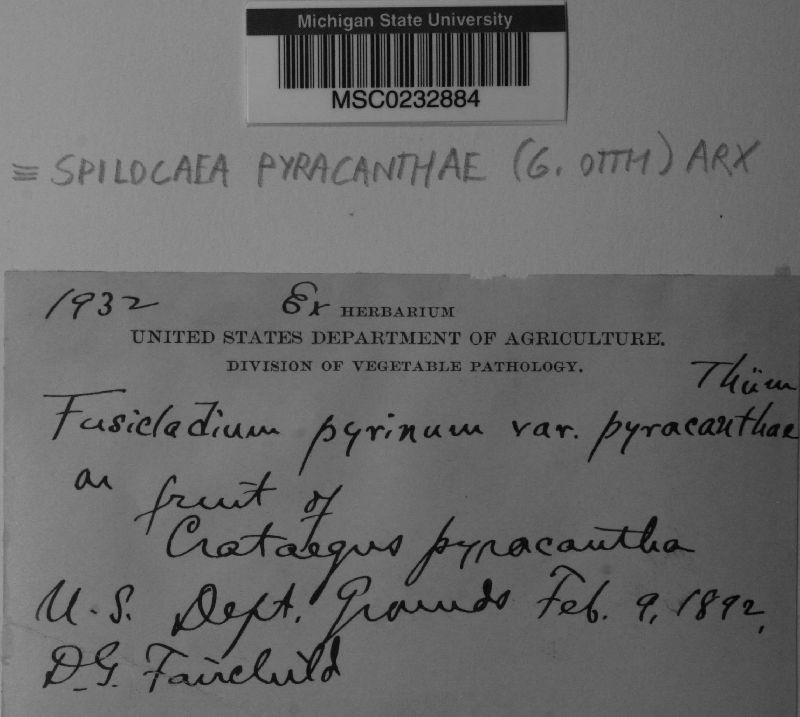 Michigan State University
MSC0232884
≡ SPILOCAEA PYRACANTHAE (G. OTTH) ARX
1932 Ex HERBARIUM
UNITED STATES DEPARTMENT OF AGRICULTURE.
DIVISION OF VEGETABLE PATHOLOGY.
Thüm
Fusicladium pyrinum var. pyracanthae
on fruit of
Crataegus pyracantha
U.S. Dept. Grounds Feb. 9, 1892,
D.G. Fairchild